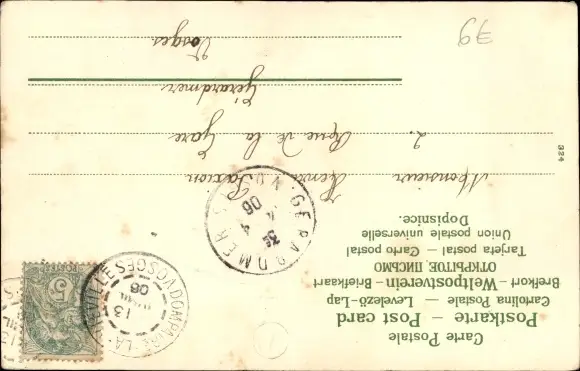 Carte Postale
Postkarte – Post card
Cartolina Postale – Levelező-Lap
Brefkort – Weltpostverein – Briefkaart
ОТКРЫТОЕ ПИСЬМО
Tarjeta postal – Carto postal
Union postale universelle
Dopisnice.
Monsieur Henri
2. Rue de la Gare
Gérardmer
Vosges
324
79
GERARDMER
VOSGES
3E
4
06
DOMPAIRE-LA-VIEVILLE
VOSGES
13
06
5
POSTES